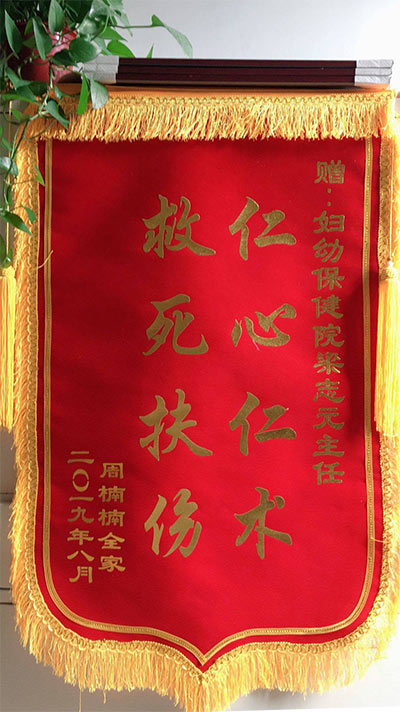 赠:妇幼保健院梁志元主任
仁心仁术
救死扶伤
周楠楠全家
二〇一九年八月